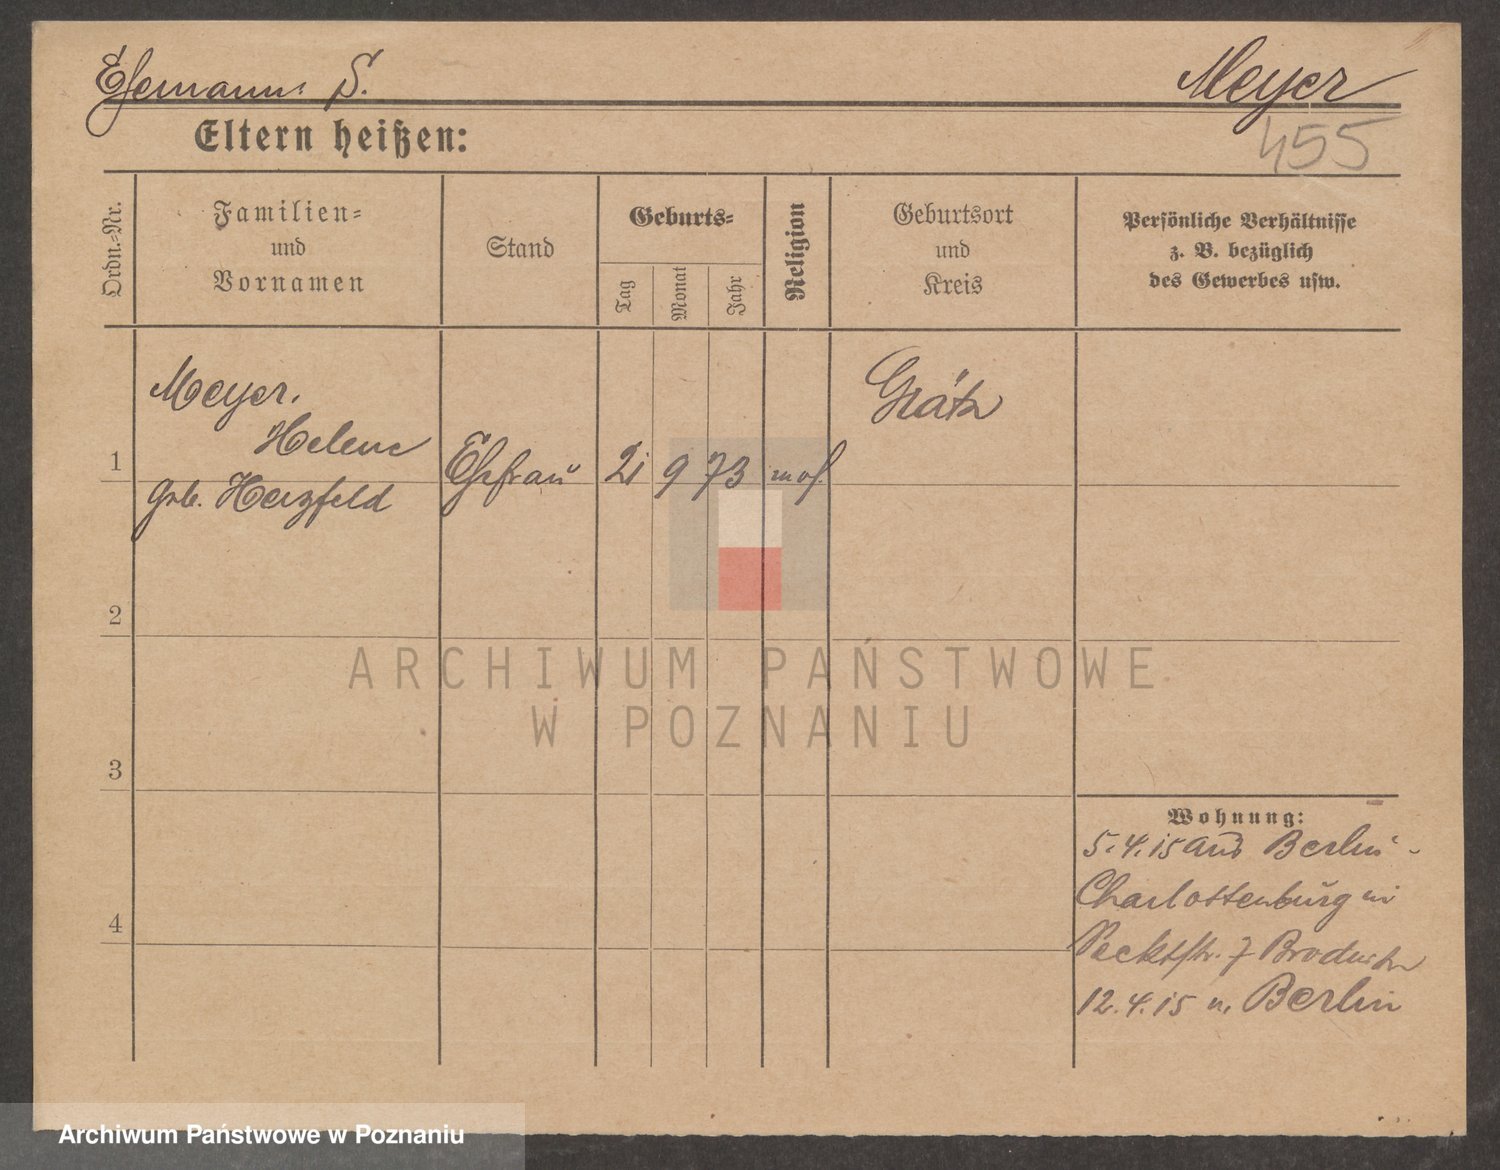 Ehemann: S. Meyer
455
Eltern heißen:
Ordn.-Nr.
Familien-
und
Vornamen
Stand
Geburts-
Tag
Monat
Jahr
Religion
Geburtsort
und
Kreis
Persönliche Verhältnisse
z. B. bezüglich
des Gewerbes usw.
Meyer.
Helene
geb. Herzfeld
1
Ehefrau
21 9 73 mos.
Grätz
2
3
4
Wohnung:
5.4.15 aus Berlin-
Charlottenburg in
7
12.4.15 n. Berlin
ARCHIWUM PAŃSTWOWE
W POZNANIU
Archiwum Państwowe w Poznaniu